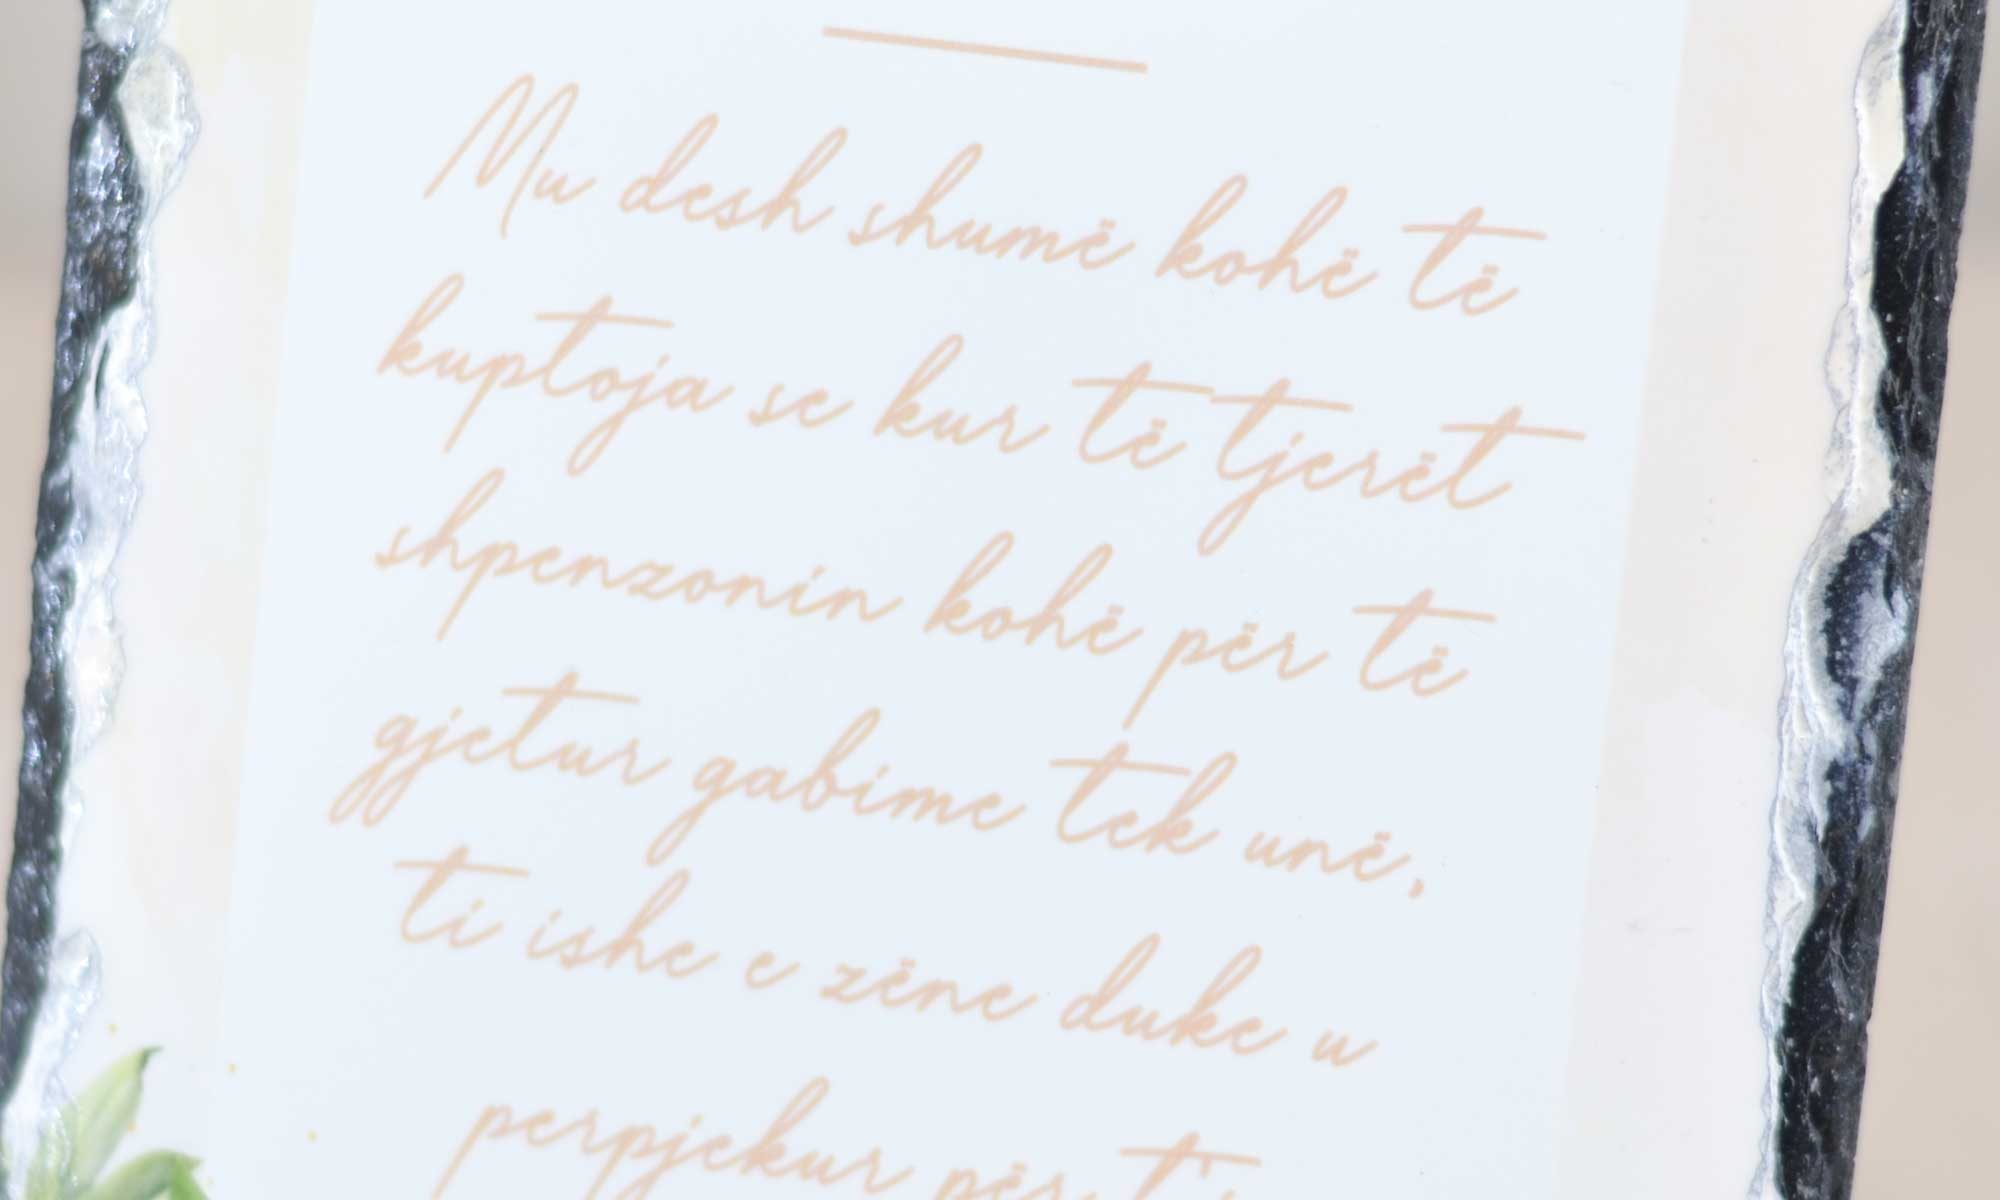 Mu desh shumë kohë të
kuptoja se kur të tjerët
shpenzonin kohë për të
gjetur gabime tek unë,
ti ishe e zëne duke u
perpjekur për